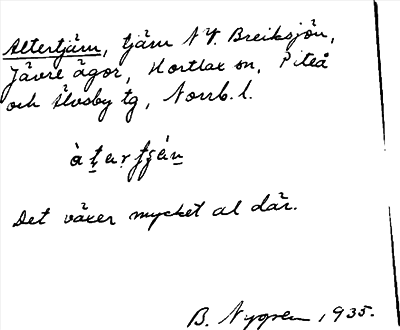 Altertjärn, tjärn N.V. Breiksjön,
Jävre ägor, Hortlax sn, Piteå
och Älvsby tg, Norrb. l.
Det växer mycket al där.
B. Nygren, 1935.